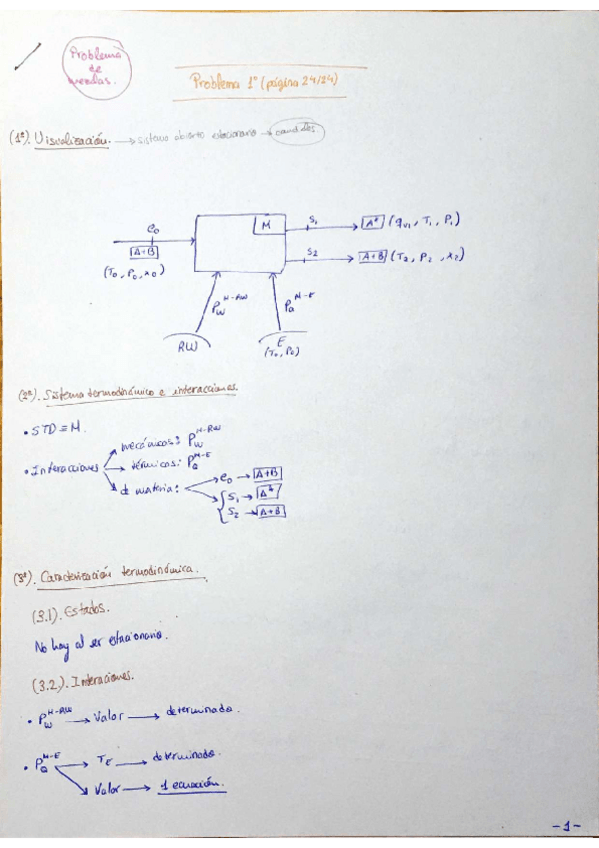 Problema
de
mezclas.
Problema 1º (página 24/24)
(1º). Visualización. → sistema abierto estacionario → caudales
e₀
A+B
(T₀, P₀, x₀)
M
S₁
A* (q_v1, T₁, P₁)
S₂
A+B (T₂, P₂, x₂)
P_W^{M-RW}
P_Q^{M-E}
RW
E
(T₀, P₀)
(2º). Sistema termodinámico e interacciones.
• STD ≡ M.
• Interaciones
mecánicas: P_W^{M-RW}
térmicas: P_Q^{M-E}
de materia:
e₀ → A+B
S₁ → A*
S₂ → A+B
(3º). Caracterización termodinámica.
(3.1). Estados.
No hay al ser estacionario.
(3.2). Interaciones.
• P_W^{M-RW} → Valor → determinado.
• P_Q^{M-E} → T_E → determinado.
Valor → 1 ecuación.
-1-